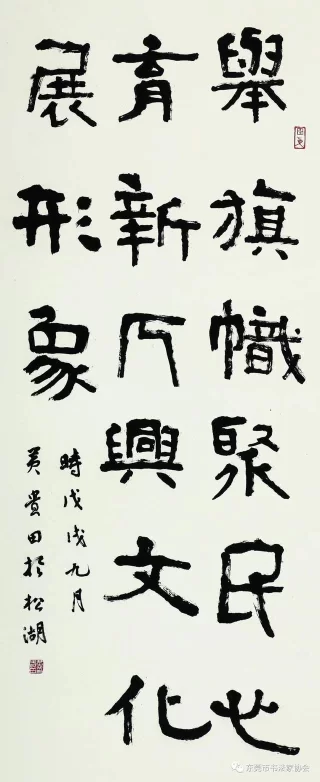 舉旗幟聚民心
育新人興文化
展形象
時戊戌九月
貴田於松湖
东莞市书法家协会